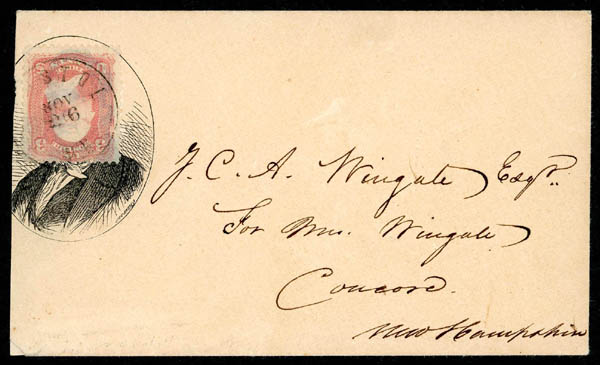 NOV
26
J. C. A. Wingate Esqr.
For Mrs. Wingate
Concord.
New Hampshire